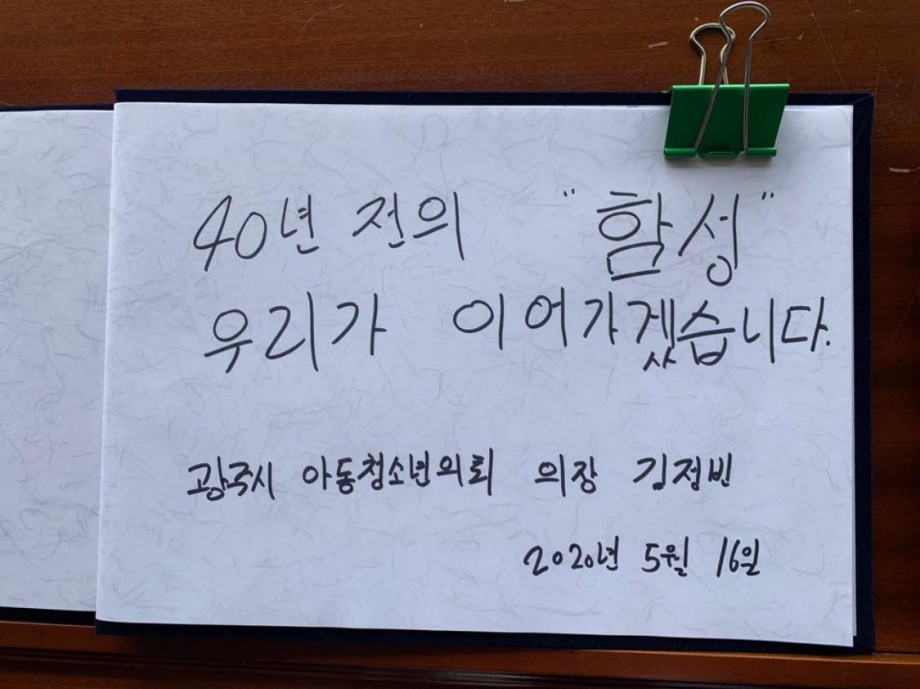 40년 전의 "함성"
우리가 이어가겠습니다.
광주시 아동청소년의회 의장 김정빈
2020년 5월 16일